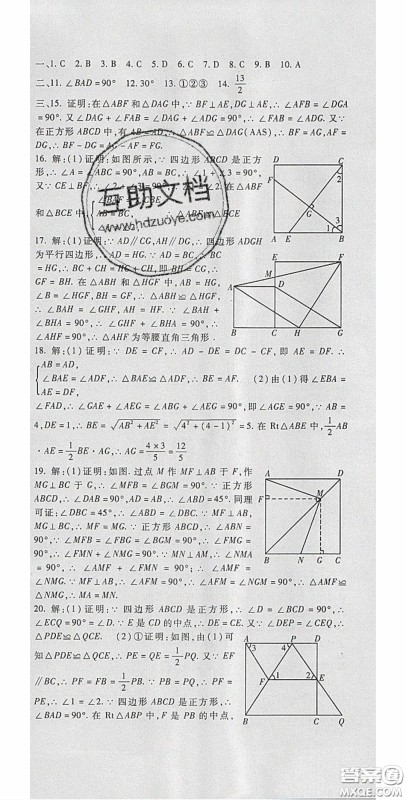 一、1. C 2. B 3. B 4. C 5. D 6. D 7. D 8. C 9. B 10. A
二、11. ∠BAD=90° 12. 30° 13. ①②③ 14. 13/2
三、15. 证明:在△ABF 和△DAG 中,∵ BF⊥AE,DG⊥AE,∴ ∠AFB=∠DGA
=90°. 又∵ ∠DAG+∠BAF=90°,∠ADG+∠DAG=90°,∴ ∠BAF=∠ADG. 又∵ 在
正方形 ABCD 中,有 AB=AD,∴ △ABF≌△DAG(AAS),∴ BF=AG,AF=
DG,∴ BF-DG=AG-AF=FG.
16. 解:(1)证明:如图所示,∵ 四边形 ABCD 是正方
形,∴ ∠A=∠ABC=90°,AB=BC,∴ ∠1+∠3=90°.
又∵ CE⊥BF,∴ ∠2+∠3=90°,∴ ∠1=∠2. 在△ABF
和△BCE 中, ∴ △ABF≌△BCE
17. 解:(1)证明:∵ AD∥CG,AH∥DG,∴ 四边形 ADGH
为平行四边形,∴ AD=HG. ∵ AD=BC,∴ BC
=HG,∴ BC+CH=HG+CH,即 BH=CG. ∴
GF=BH. 在△ABH 和△HGF 中,∵ AB=HG,
∠B=∠HGF,BH=GF,∴ △ABH≌△HGF,∴ ∠BAH=
∠GHF,AH=HF. ∵ ∠BAH+∠BHA=90°,∴ ∠GHF+∠BHA=90°,
∴ ∠AHF=90°,∴ △AHF 为等腰直角三角形.
18. 解:(1)证明:∵ DE=CF,∴ AD-DE=DC-CF,即 AE=DF. ∴
{AB=AD,
∠BAE=∠ADF,∴ △BAE≌△ADF,∴ BE=AF. (2)由(1)得∠EBA=
AE=DF,
∠FAD,∴ ∠GAE+∠AEG=∠EBA+∠AEG=90°,∴ ∠AGE=90°. ∵ AB=
4,DE=1,∴ BE=√AB²+AE²=√4²+(4-1)²=5. 在 Rt△ABE 中,1/2AB
·AE=1/2BE·AG,∴ AG=4×3/5=12/5
19. 解:(1)证明:如图. 过点 M 作 MF⊥AB 于 F,作
MG⊥BC 于 G,∴ ∠MFB=∠BGM=90°. ∵ 正方形
ABCD,∴ ∠DAB=90°,AD=AB,∴ ∠ABD=45°. 同理
可证:∠DBC=45°,∴ ∠ABD=∠DBC. ∵ MF⊥AB,
MG⊥BC,∴ MF=MG. ∵ 正方形 ABCD,∴ ∠ABN=
90°. ∵ ∠MFB=∠FBG=∠BGM=90°,∴ ∠FMG=90°,
∴ ∠FMN+∠NMG=90°. ∵ MN⊥AM,∴ ∠NMA=
90°,∴ ∠AMF+∠FMN=90°,∴ ∠AMF=
∠NMG. ∵ MF⊥AB,∴ ∠AFM=90°,∴ ∠AFM=∠NGM=90°,∴ △AMF≌
△NMG,∴ MA=MN.
20. 解:(1)证明:∵ 四边形 ABCD 是正方形,∴ ∠D=∠BCD=90°,∴
∠ECQ=90°=∠D. ∵ E 是 CD 的中点,∴ DE=CE. 又∵ ∠DEP=∠CEQ,∴
△PDE≌△QCE. (2)①证明:如图,由(1)可
知△PDE≌△QCE,∴ PE=QE=1/2PQ. 又∵ EF
∥BC,∴ PF=FB=1/2PB. ∵ PB=PQ,∴ PF=PE,
∴ ∠1=∠2. ∵ 四边形 ABCD 是正方形,∴
∠BAD=90°. 在 Rt△ABP 中,∵ F 是 PB 的中点,
互助文档
www.hdzuoye.com
答案圈
MXQE.COM